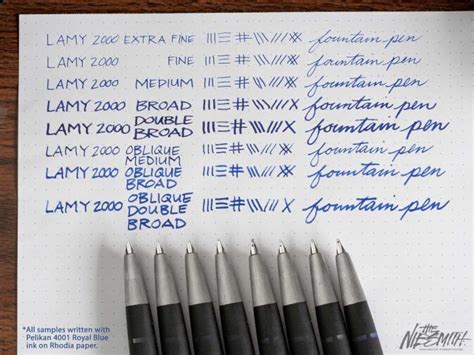 LAMY 2000 EXTRA FINE fountain pen
LAMY 2000 FINE fountain pen
LAMY 2000 MEDIUM fountain pen
LAMY 2000 BROAD fountain pen
LAMY 2000 DOUBLE BROAD fountain pen
LAMY 2000 OBLIQUE MEDIUM fountain pen
LAMY 2000 OBLIQUE BROAD fountain pen
LAMY 2000 OBLIQUE DOUBLE BROAD fountain pen
*All samples written with
Pelikan 4001 Royal Blue
ink on Rhodia paper.
THE NIBSMITH